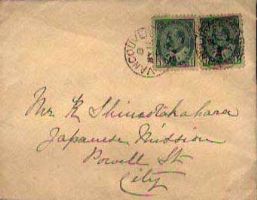 VANCOUVER
Mr K Shinotakahara
Japanese Mission
Powell St
City